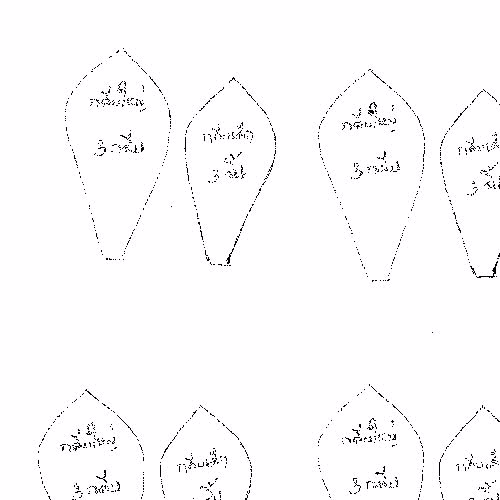 กลีบใหญ่
3 กลีบ
กลีบเล็ก
3 ชิ้น
กลีบใหญ่
3 กลีบ
กลีบเล็ก
3
กลีบใหญ่
3 กลีบ
กลีบเล็ก
กลีบใหญ่
3 กลีบ
กลีบเล็ก